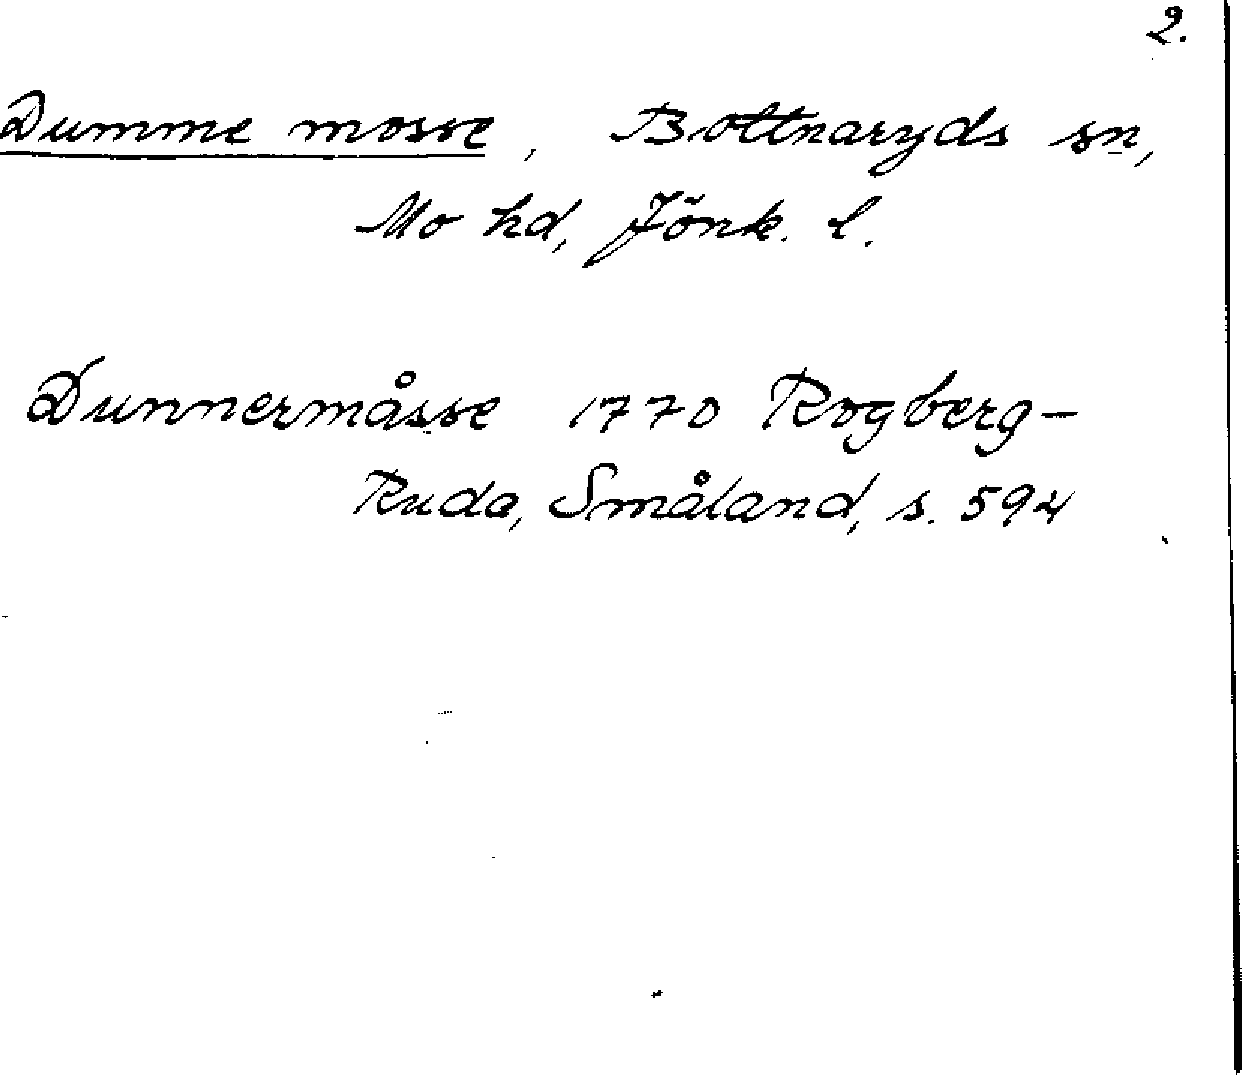 2.
Dumme mosse, Bottnaryds sn,
Mo hd, Jönk. l.
Dunnermåsse 1770 Rogberg-
Ruda, Småland, s. 594